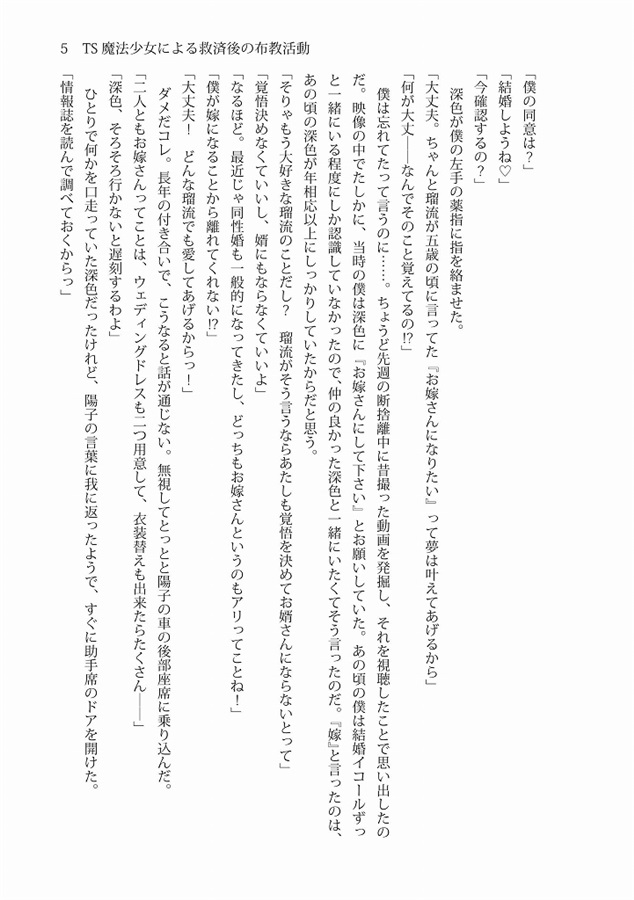 5　TS 魔法少女による救済後の布教活動
「僕の同意は？」
「結婚しようね♡」
「今確認するの？」
　深色が僕の左手の薬指に指を絡ませた。
「大丈夫。ちゃんと瑠流が五歳の頃に言ってた『お嫁さんになりたい』って夢は叶えてあげるから」
「何が大丈――なんでそのこと覚えてるの!?
　僕は忘れてたって言うのに……。ちょうど先週の断捨離中に昔撮った動画を発掘し、それを視聴したことで思い出したの
だ。映像の中でたしかに、当時の僕は深色に『お嫁さんにして下さい』とお願いしていた。あの頃の僕は結婚イコールずっ
と一緒にいる程度にしか認識していなかったので、仲の良かった深色と一緒にいたくてそう言ったのだ。『嫁』と言ったのは、
あの頃の深色が年相応以上にしっかりしていたからだと思う。
「そりゃもう大好きな瑠流のことだし？　瑠流がそう言うならあたしも覚悟を決めてお婿さんにならないとって」
「覚悟決めなくていいし、婿にもならなくていいよ」
「なるほど。最近じゃ同性婚も一般的になってきたし、どっちもお嫁さんというのもアリってことね！」
「僕が嫁になることから離れてくれない!?」
「大丈夫！　どんな瑠流でも愛してあげるからっ！」
　ダメだコレ。長年の付き合いで、こうなると話が通じない。無視してとっとと陽子の車の後部座席に乗り込んだ。
「二人ともお嫁さんってことは、ウェディングドレスも二つ用意して、衣装替えも出来たらたくさん――」
「深色、そろそろ行かないと遅刻するわよ」
　ひとりで何かを口走っていた深色だったけれど、陽子の言葉に我に返ったようで、すぐに助手席のドアを開けた。
「情報誌を読んで調べておくからっ」